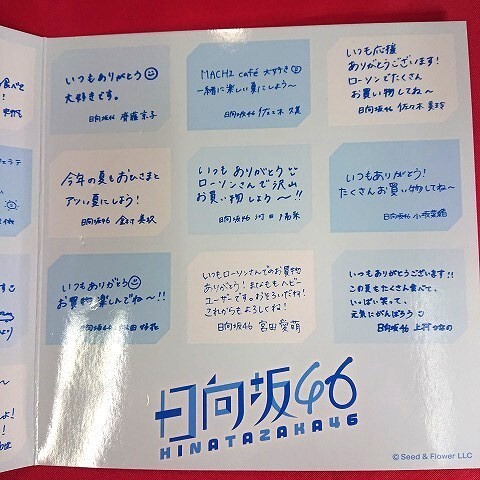 食べて
!
いつもありがとう
大好きです。
日向坂46 齊藤京子
MACHI café 大好き
一緒に楽しい夏にしよう〜
日向坂46 佐々木久美
いつも応援
ありがとうございます!
ローソンでたくさん
お買い物してね〜
日向坂46 佐々木美玲
今年の夏もおひさまと
アツい夏にしよう!
日向坂46 金村美玖
いつもありがとう
ローソンさんで沢山
お買い物しよう〜!!
日向坂46 河田陽菜
いつもありがとう!
たくさんお買い物してね〜
日向坂46 小坂菜緒
いつもありがとう
お買物楽しんでね〜!!
日向坂46 松田好花
いつもローソンさんでのお買物
ありがとう!まなももヘビー
ユーザーです。おそろいだね!
これからもよろしくね!
日向坂46 宮田愛萌
いつもありがとうございます!!
この夏もたくさん食べて、
いっぱい笑って、
元気にがんばろう
日向坂46 上村ひなの
日向坂46
HINATAZAKA46
© Seed & Flower LLC